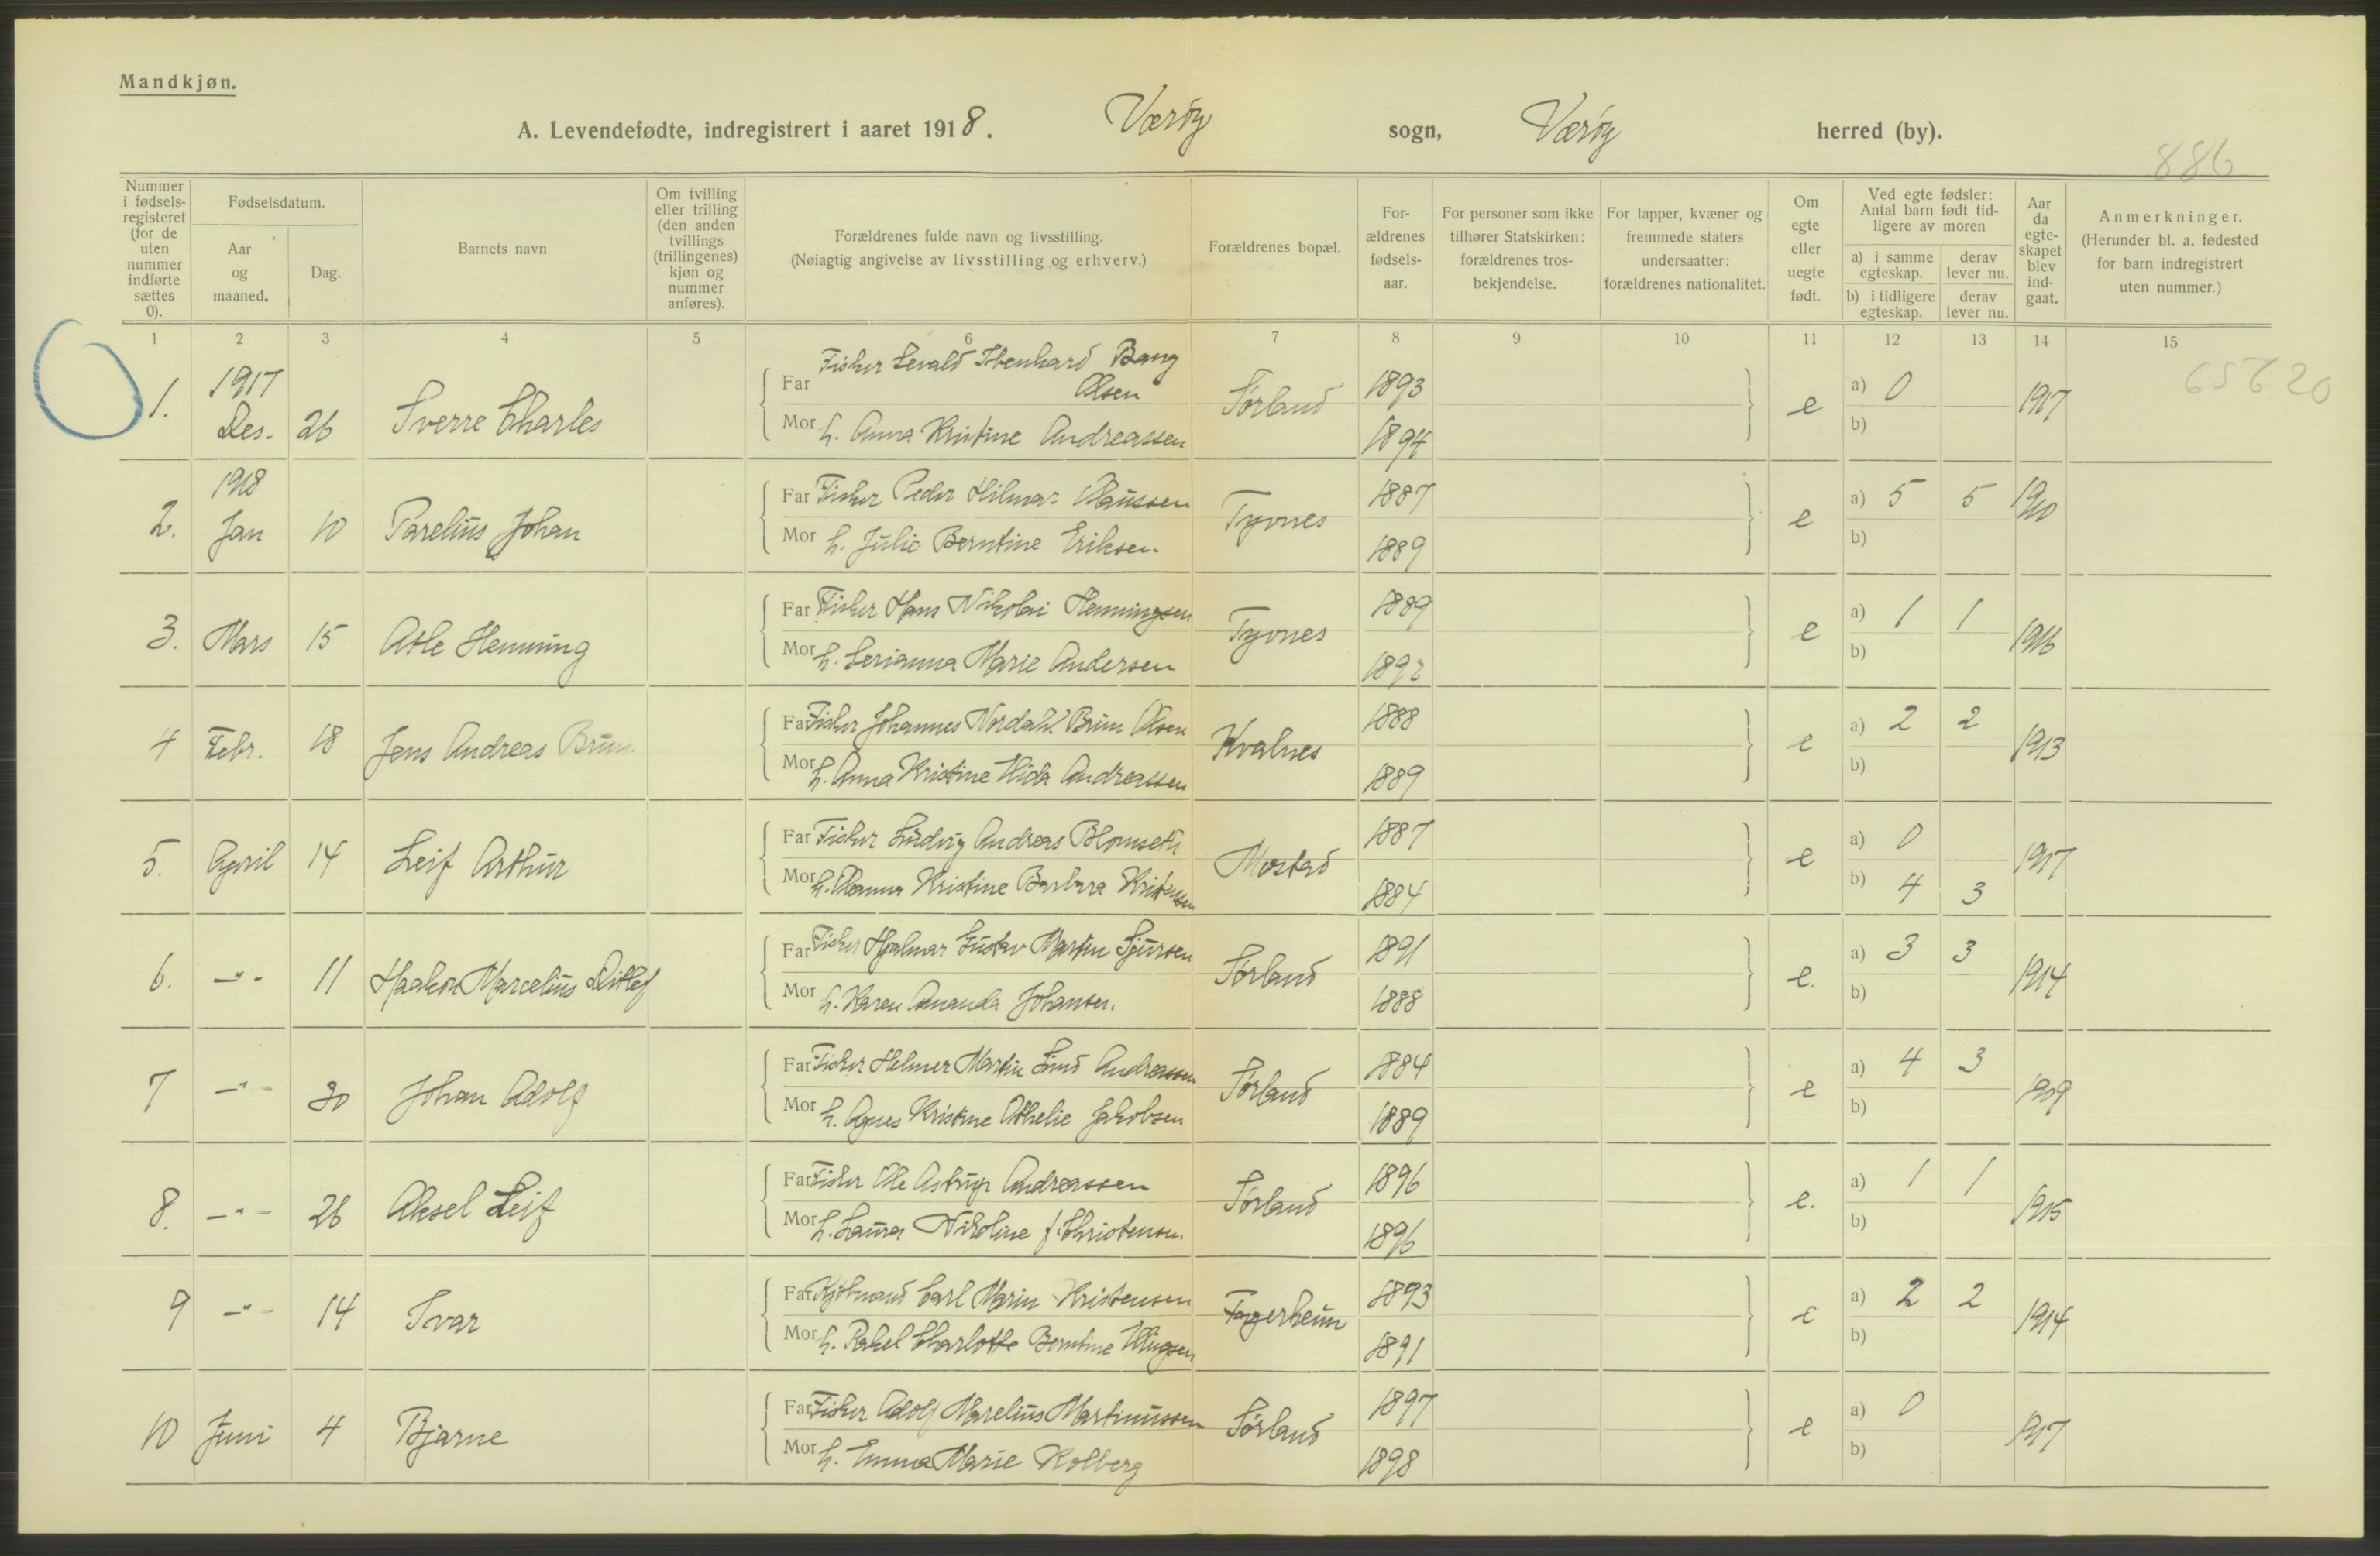 Mandkjøn.
A. Levendefødte, indregistrert i aaret 1918. Værøy sogn, Værøy herred (by).
886
Nummer i fødsels-registeret (for de uten nummer indførte sættes 0).
Fødselsdatum.
Aar og maaned.
Dag.
Barnets navn
Om tvilling eller trilling (den anden tvillings (trillingenes) kjøn og nummer anføres).
Forældrenes fulde navn og livsstilling.
(Nøiagtig angivelse av livsstilling og erhverv.)
Forældrenes bopæl.
For-ældrenes fødsels-aar.
For personer som ikke tilhører Statskirken: forældrenes tros-bekjendelse.
For lapper, kvæner og fremmede staters undersaatter: forældrenes nationalitet.
Om egte eller uegte født.
Ved egte fødsler: Antal barn født tid-ligere av moren
a) i samme egteskap.
derav lever nu.
b) i tidligere egteskap.
derav lever nu.
Aar da egte-skapet blev ind-gaat.
Anmerkninger.
(Herunder bl. a. fødested for barn indregistrert uten nummer.)
1 2 3 4 5 6 7 8 9 10 11 12 13 14 15
65620
1. 1917 Des. 26 Sverre Charles
Far Fisker Levald Bang Olsen
Mor h. Anna Kristine Andreassen
Sørland 1893 1894 e a) 0 b) 1917
2. 1918 Jan 10 Parelius Johan
Far Fisker Peder Hilmar Claussen
Mor h. Julie Berntine Eriksen.
Tyvnes 1887 1889 e a) 5 5 b) 1910
3. Mars 15 Atle Henning
Far Fisker Hans Nikolai Henningsen
Mor h. Serianna Marie Andersen
Tyvnes 1889 1892 e a) 1 1 b) 1916
4 Febr. 18 Jens Andreas Brun
Far Fisker Johannes Nordahl Brun Olsen
Mor h. Anna Kristine Hida Andreassen
Kvalnes 1888 1889 e a) 2 2 b) 1913
5. April 14 Leif Arthur
Far Fisker Ludvig Andreas Blomseth
Mor h. Kristine Barbara Kristensen
Mostad 1887 1884 e a) 0 b) 4 3 1917
6. -"- 11 Haakon Marcelius Ditlef
Far Fisker Hjalmar Gustav Martin Sjursen
Mor h. Karen Amanda Johansen.
Sørland 1891 1888 e. a) 3 3 b) 1914
7 -"- 30 Johan Adolf
Far Fisker Helmer Martin Lind Andreassen
Mor h. Agnes Kristine Othelie Jakobsen
Sørland 1884 1889 e a) 4 3 b) 1909
8. -"- 26 Aksel Leif
Far Fisker Ole Astrup Andreassen
Mor h. Laura Nikoline f. Christensen.
Sørland 1896 1896 e. a) 1 1 b) 1915
9 -"- 14 Ivar
Far Kjøbmand Carl Marin Kristensen
Mor h. Rakel Charlotte Berntine Ellingsen
Fagerheim 1893 1891 e a) 2 2 b) 1914
10 Juni 4 Bjarne
Far Fisker Adolf Marelius Martinussen
Mor h. Emma Marie Kolberg
Sørland 1897 1898 e a) 0 b) 1917